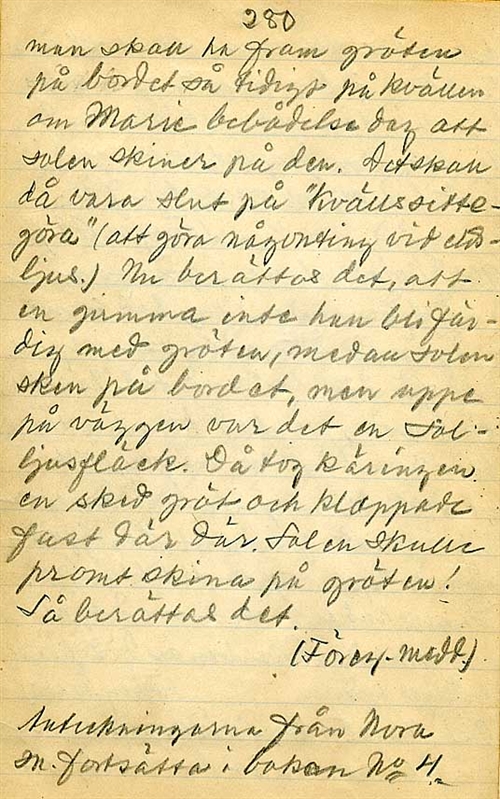 280
man skall ha fram gröten
på bordet så tidigt på kvällen
om Marie bebådelse dag att
solen skiner på den. Det skall
då vara slut på "Kvällssitte-
göra" (att göra någonting vid elds-
ljus.) Nu berättas det, att
en gumma inte hann bli fär-
dig med gröten, medan solen
sken på bordet, men uppe
på väggen var det en sol-
ljusfläck. Då tog käringen
en sked gröt och klappade
fast där där. Solen skulle
promt skina på gröten!
Så berättas det.
(Föreg. medd.)
Anteckningarna från Nora
sn. fortsätta i boken No 4.